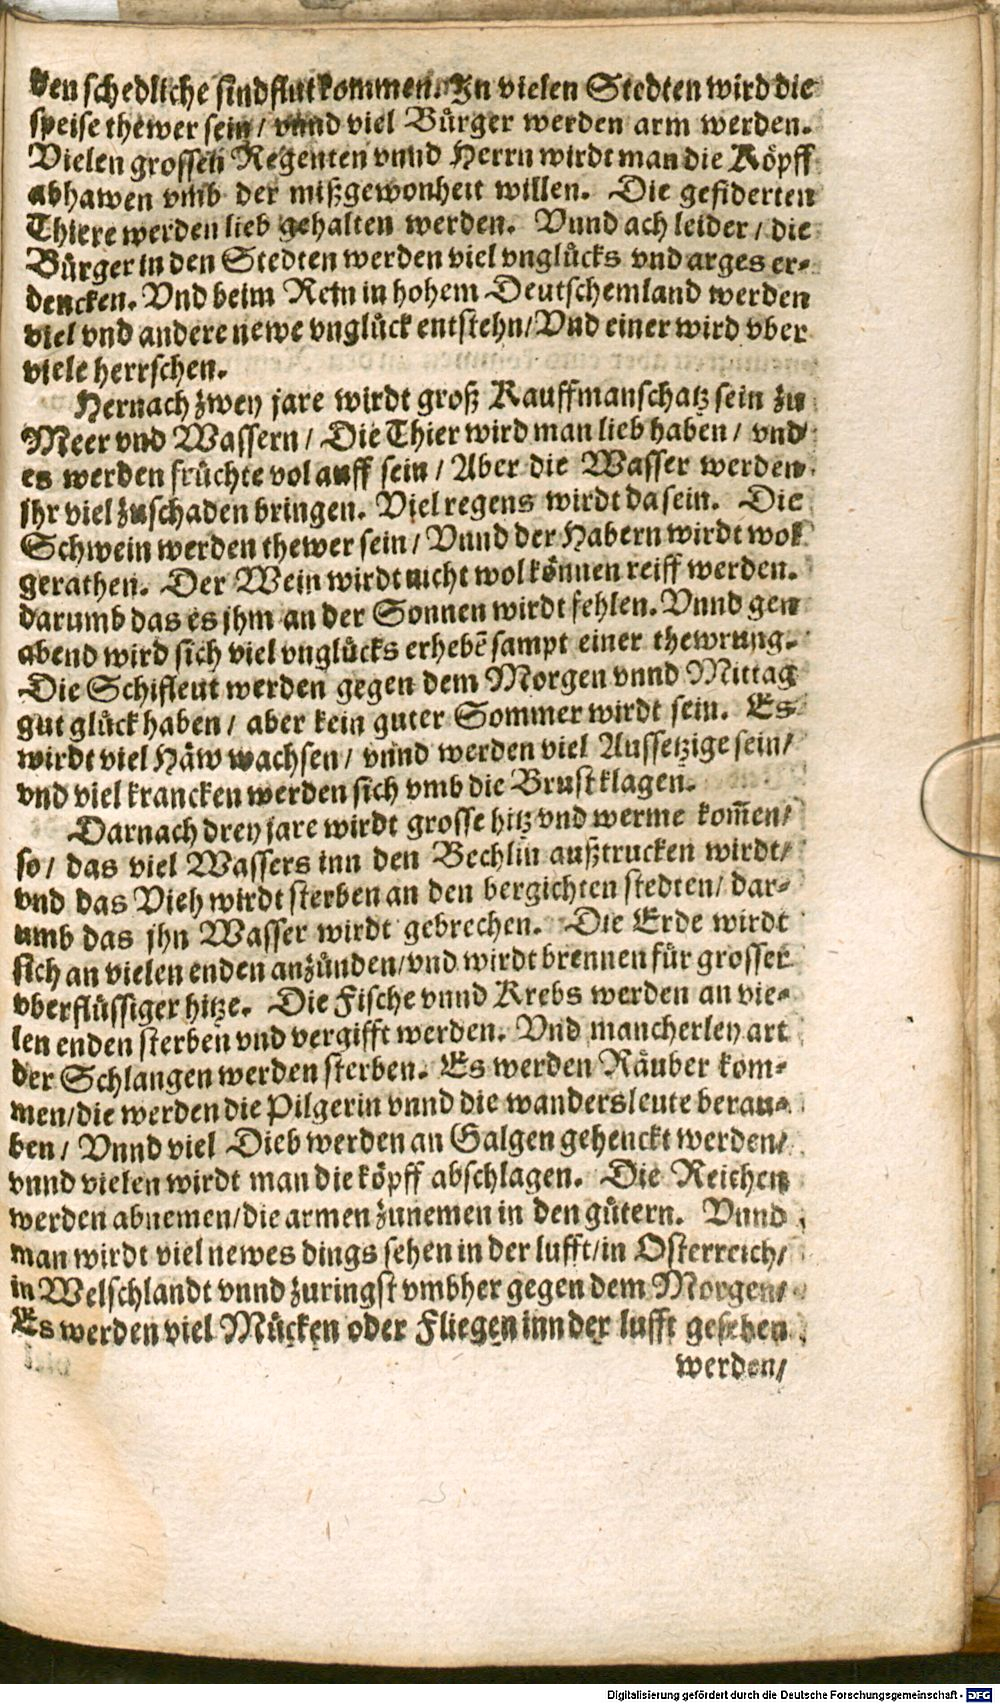 den schedliche sindflut kommen. In vielen Stedten wird die
speise thewer sein / vnnd viel Bürger werden arm werden.
Vielen grossen Regenten vnnd Herrn wirdt man die Köpff
abhawen vmb der mißgewonheit willen. Die gefiderten
Thiere werden lieb gehalten werden. Vnnd ach leider / die
Bürger in den Stedten werden viel vnglücks vnd arges er-
dencken. Vnd beim Rein in hohem Deutschemland werden
viel vnd andere newe vnglück entstehn / Vnd einer wird vber
viele herrschen.
Hernach zwey jare wirdt groß Kauffmanschatz sein zu
Meer vnd Wassern / Die Thier wird man lieb haben / vnd
es werden früchte vol auff sein / Aber die Wasser werden
jhr viel zuschaden bringen. Viel regens wirdt da sein. Die
Schwein werden thewer sein / Vnnd der Habern wirdt wol
gerathen. Der Wein wirdt nicht wol können reiff werden.
darumb das es jhm an der Sonnen wirdt fehlen. Vnnd gen
abend wird sich viel vnglücks erhebẽ sampt einer thewrung.
Die Schifleut werden gegen dem Morgen vnnd Mittag
gut glück haben / aber kein guter Sommer wirdt sein. Es
wirdt viel Häw wachsen / vnnd werden viel Aussetzige sein /
vnd viel krancken werden sich vmb die Brust klagen.
Darnach drey jare wirdt grosse hitz vnd werme kom̃en /
so / das viel Wassers inn den Bechlin außtrucken wirdt /
vnd das Vieh wirdt sterben an den bergichten stedten / dar-
umb das jhn Wasser wirdt gebrechen. Die Erde wirdt
sich an vielen enden anzünden / vnd wirdt brennen für grosser
vberflüssiger hitze. Die Fische vnnd Krebs werden an vie-
len enden sterben vnd vergifft werden. Vnd mancherley art
der Schlangen werden sterben. Es werden Räuber kom-
men / die werden die Pilgerin vnnd die wandersleute berau-
ben / Vnnd viel Dieb werden an Galgen gehenckt werden /
vnnd vielen wirdt man die köpff abschlagen. Die Reichen
werden abnemen / die armen zunemen in den gütern. Vnnd
man wirdt viel newes dings sehen in der lufft / in Osterreich /
in Welschlandt vnnd zuringst vmbher gegen dem Morgen /
Es werden viel Mücken oder Fliegen inn der lufft gesehen
werden /
Digitalisierung gefördert durch die Deutsche Forschungsgemeinschaft - DFG